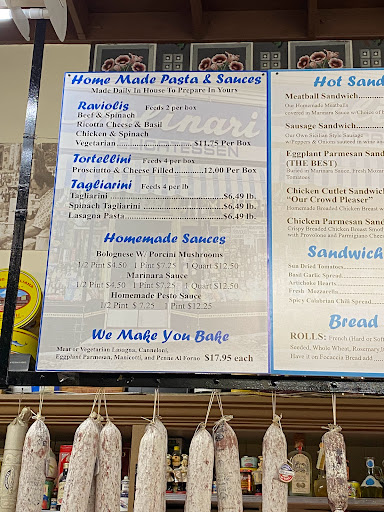 Home Made Pasta & Sauces
Made Daily In House To Prepare In Yours
Raviolis Feeds 2 per box
Beef & Spinach
Ricotta Cheese & Basil
Chicken & Spinach
Vegetarian $11.75 Per Box
Tortellini Feeds 4 per box
Prosciutto & Cheese Filled 12.00 Per Box
Tagliarini Feeds 4 per lb
Tagliarini $6.49 lb.
Spinach Tagliarini $6.49 lb.
Lasagna Pasta $6.49 lb.
Homemade Sauces
Bolognese W/ Porcini Mushrooms
1/2 Pint $4.50 1 Pint $7.25 1 Quart $12.50
Marinara Sauce
1/2 Pint $4.50 1 Pint $7.25 1 Quart $12.50
Homemade Pesto Sauce
1/2 Pint $ 7.25 1 Pint $12.25
We Make You Bake
Meat or Vegetarian Lasagna, Canneloni,
Eggplant Parmesan, Manicotti, and Penne Al Forno $17.95 each
Hot Sand
Meatball Sandwich
Our Homemade Meatballs
covered in Marinara Sauce w/Choice of
Sausage Sandwich
Our Own Sicilian Style Sausage
w/Peppers & Onions sauteed in wine
Eggplant Parmesan Sandwich
(THE BEST)
Baked in Marinara Sauce, Fresh Mozza
Tomatoes
Chicken Cutlet Sandwich
"Our Crowd Pleaser"
Homemade Breaded Chicken Breast w
Chicken Parmesan Sand
Crispy Breaded Chicken Breast Smot
with Provolone and Parmigiano Chees
Sandwich
Sun Dried Tomatoes
Basil Garlic Spread
Artichoke Hearts
Fresh Mozzarella
Spicy Calabrian Chili Spread
Bread
ROLLS: French (Hard or Soft
Seeded, Whole Wheat, Rosemary,
Have it on Focaccia Bread add